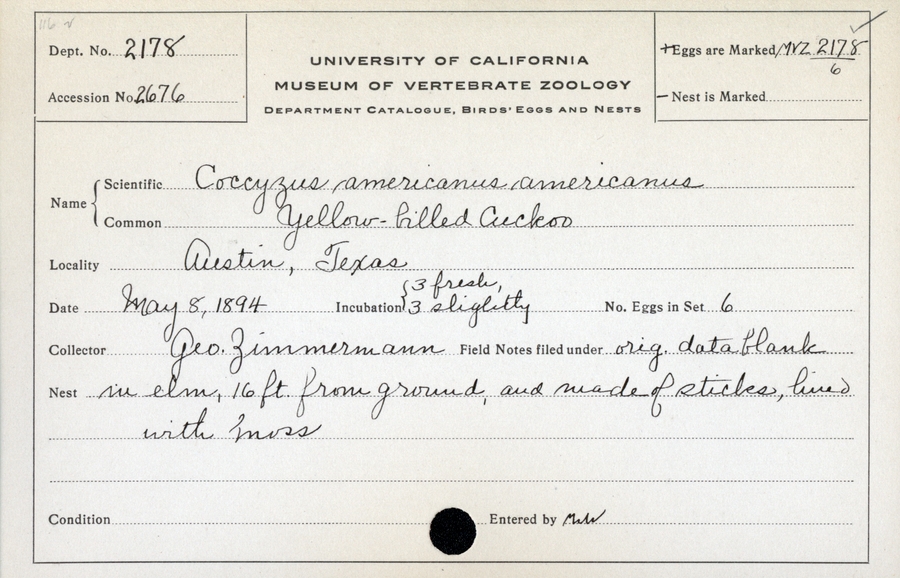 Dept. No. 2178
Accession No. 2676
UNIVERSITY OF CALIFORNIA
MUSEUM OF VERTEBRATE ZOOLOGY
DEPARTMENT CATALOGUE, BIRDS' EGGS AND NESTS
+Eggs are Marked MVZ 2178
6
- Nest is Marked
Name { Scientific Coccyzus americanus americanus
Common Yellow-billed Cuckoo
Locality Austin, Texas
Date May 8, 1894 Incubation { 3 fresh,
3 slightly No. Eggs in Set 6
Collector Geo. Zimmermann Field Notes filed under orig. data blank
Nest in elm, 16 ft. from ground, and made of sticks, lined
with moss
Condition Entered by